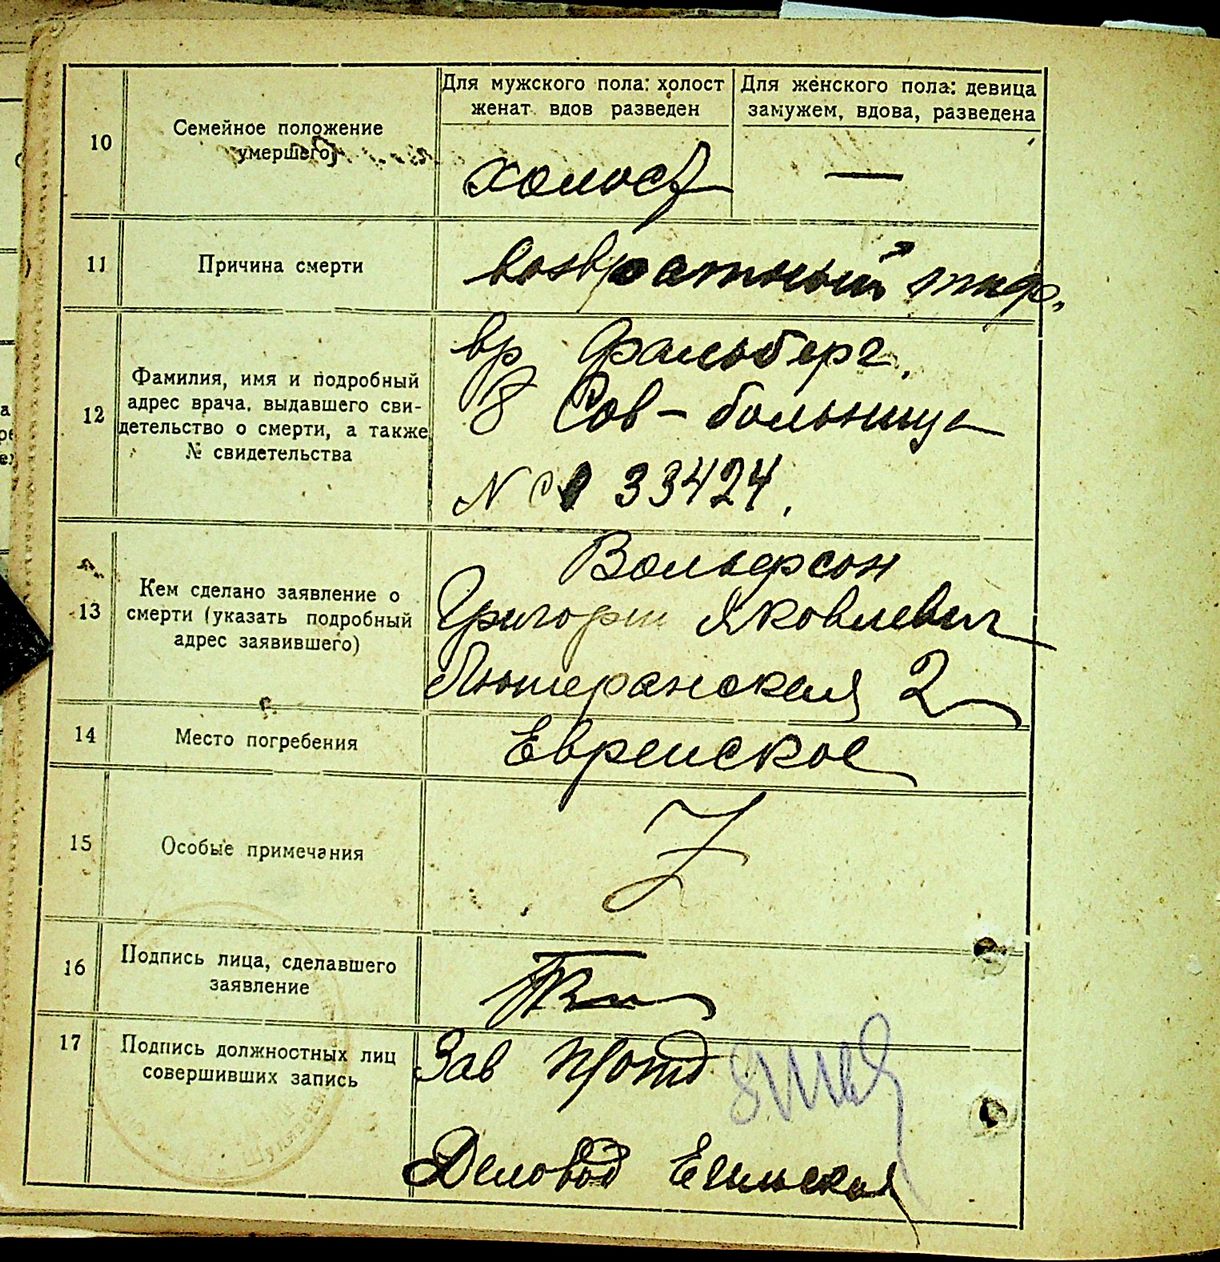 Для мужского пола: холост
женат вдов разведен
Для женского пола: девица
замужем, вдова, разведена
10
Семейное положение
умершего
холост
—
11
Причина смерти
возвратный тиф.
12
Фамилия, имя и подробный
адрес врача, выдавшего сви-
детельство о смерти, а также
№ свидетельства
вр Фальберг.
8 Сов – больница
N 33424.
13
Кем сделано заявление о
смерти (указать подробный
адрес заявившего)
Вольфсон
Григории Яковлевич
Лютеранская 2
14
Место погребения
Евреиское
15
Особые примечания
16
Подпись лица, сделавшего
заявление
17
Подпись должностных лиц
совершивших запись
Зав
Деловод